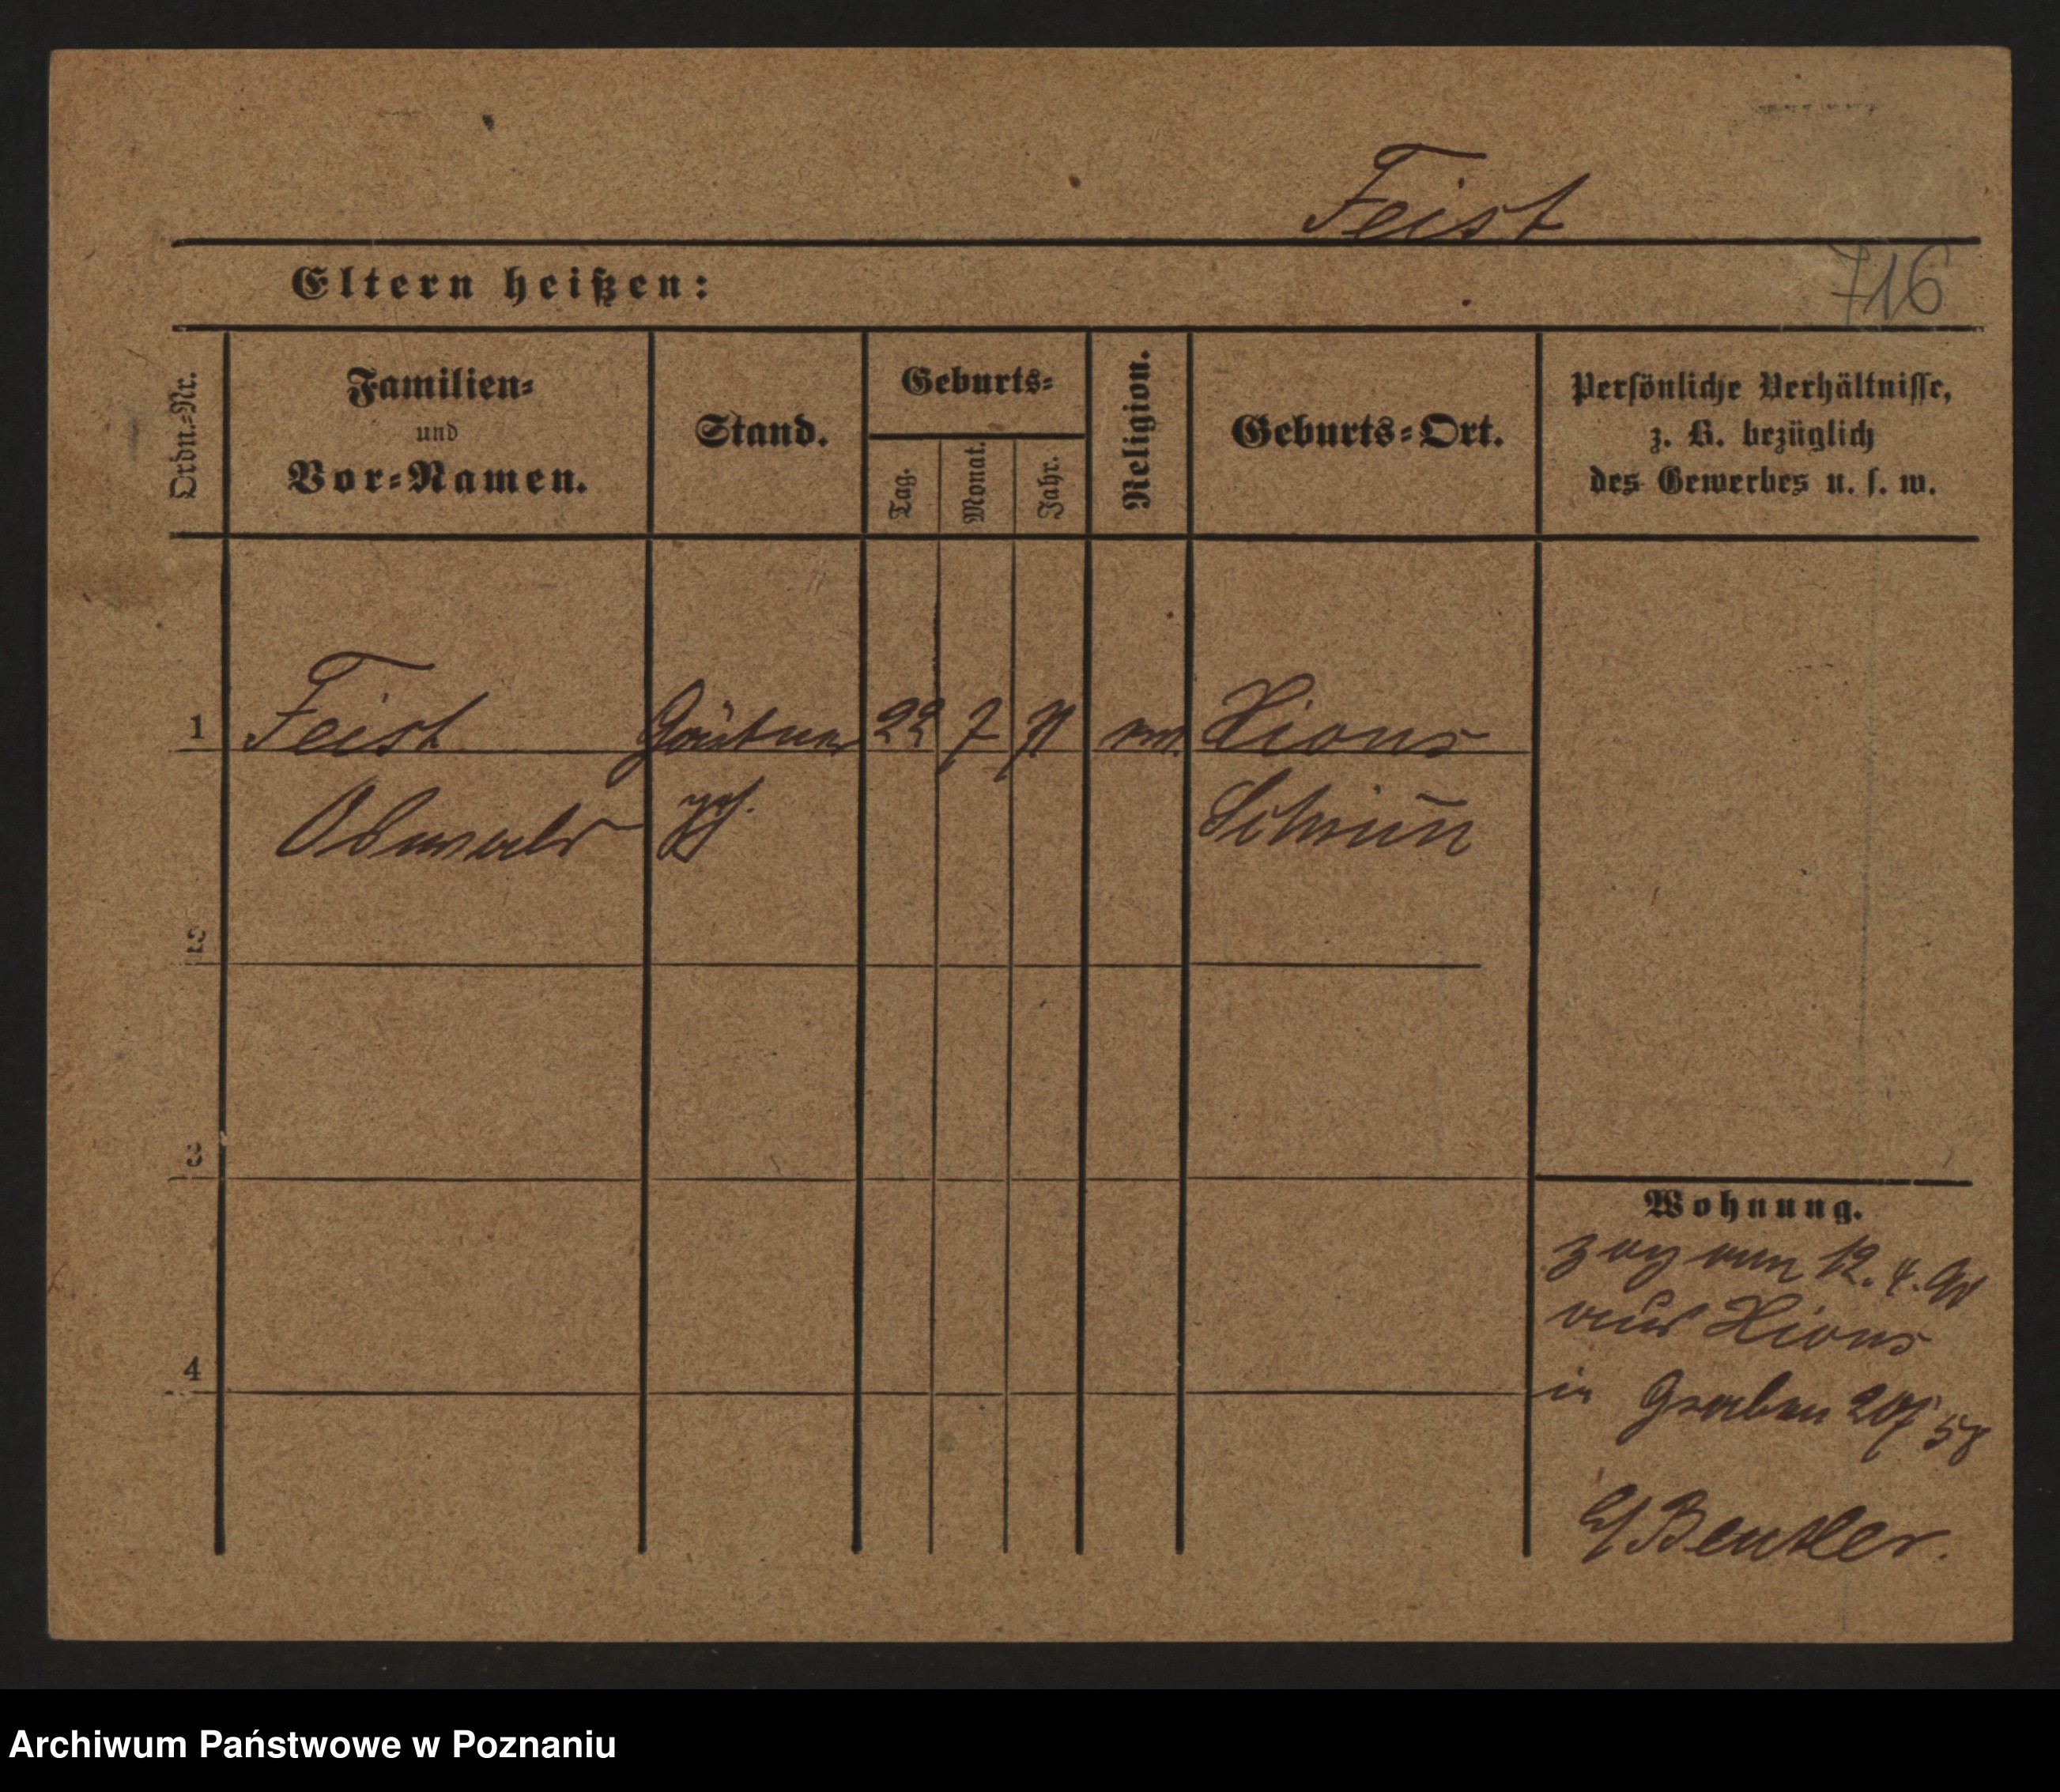 Feist
Eltern heißen:
716
Ordn.=Nr.
Familien=
und
Vor=Namen.
Stand.
Geburts=
Tag.
Monat.
Jahr.
Religion.
Geburts=Ort.
Persönliche Verhältnisse,
z. B. bezüglich
des Gewerbes u. s. w.
1
Feist Gärtner 22 7 71 Xions
Oswald Schrim
2
3
4
Wohnung.
zog am 12. 4.
aus Xions
in Graben
Beutler.
Archiwum Państwowe w Poznaniu